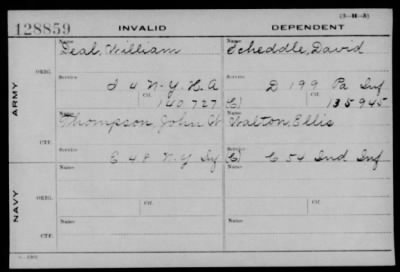 (3-H-3)
128859 INVALID DEPENDENT
Name Name
Deal, William Scheddle, David
ORIG.
Service Service
I 4 N-Y H. A D 199 Pa Inf
Ctf. Ctf.
140727 C) 135945
ARMY
Name Name
Thompson, John W Walton, Ellis
CTF.
Service Service
E 48 N.Y C) C 54 Ind Inf
Name Name
ORIG.
Service Ctf. Service Ctf.
NAVY
Name Name
CTF.
Service Service